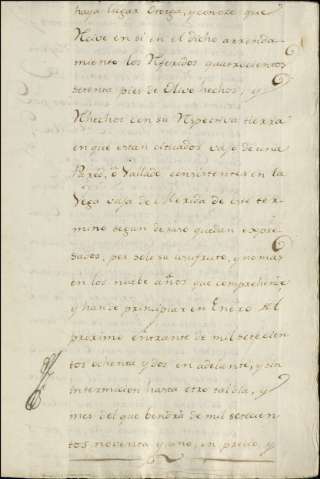 haya lugar Otorga, y conoze que
Reive en si en el dicho arrenda
miento los Referidos quatrocientos
setenta pies de Olivo hechos, y
Rhechos con su Respectiva tierra
en que estan cituados vajo de una
Pared, o Vallado consistentes en la
Vega vaja de Merida de este ter
mino segun deSuso quedan expre
sados, por solo su usufruto, y no mas
en los nuebe años que comprehende
y han de principiar en Enero del
proximo entrante de mil setecien
tos ochenta y dos en adelante, y sin
intermicion hasta otro tal dia, y
mes del que bendrá de mil setecien
tos noventa y uno, en precio, y